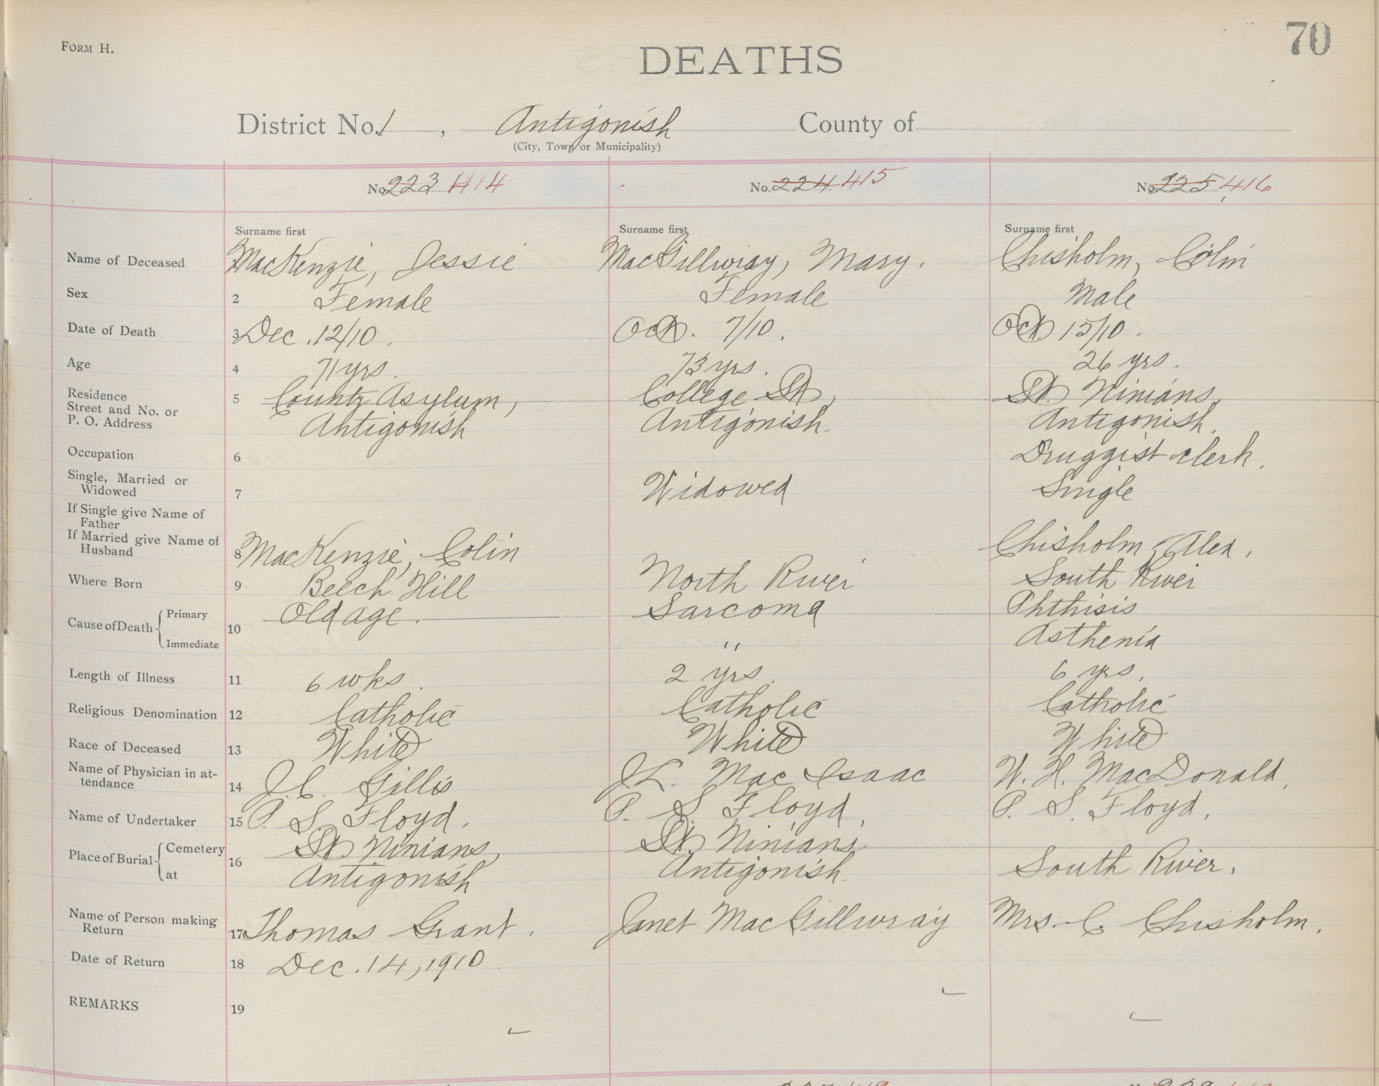 FORM H.
70
DEATHS
District No. 1, Antigonish County of
(City, Town or Municipality)
No. 223 414 No. 224 415 No. 225 416
Surname first Surname first Surname first
Name of Deceased MacKenzie, Jessie MacGillivray, Mary. Chisholm, Colin
Sex 2 Female Female Male
Date of Death 3 Dec. 12/10. Oct. 7/10. Oct 15/10.
Age 4 71 yrs. 73 yrs. 26 yrs.
Residence Street and No. or P. O. Address 5 County Asylum, College St, St Ninians,
Antigonish Antigonish. Antigonish.
Occupation 6 Druggist clerk.
Single, Married or Widowed 7 Widowed Single
If Single give Name of Father
If Married give Name of Husband 8 MacKenzie, Colin Chisholm, Alex.
Where Born 9 Beech Hill North River South River
Cause of Death Primary 10 Old age. Sarcoma Phthisis
Immediate " Asthenia
Length of Illness 11 6 wks. 2 yrs. 6 yrs.
Religious Denomination 12 Catholic Catholic Catholic
Race of Deceased 13 White White White
Name of Physician in attendance 14 J.C. Gillis J.L. MacIsaac W. H. MacDonald.
Name of Undertaker 15 P. S. Floyd. P. S. Floyd. P. S. Floyd.
Place of Burial Cemetery at 16 St Ninians, St. Ninians South River.
Antigonish Antigonish.
Name of Person making Return 17 Thomas Grant. Janet MacGillivray Mrs. C. Chisholm.
Date of Return 18 Dec. 14, 1910
REMARKS 19